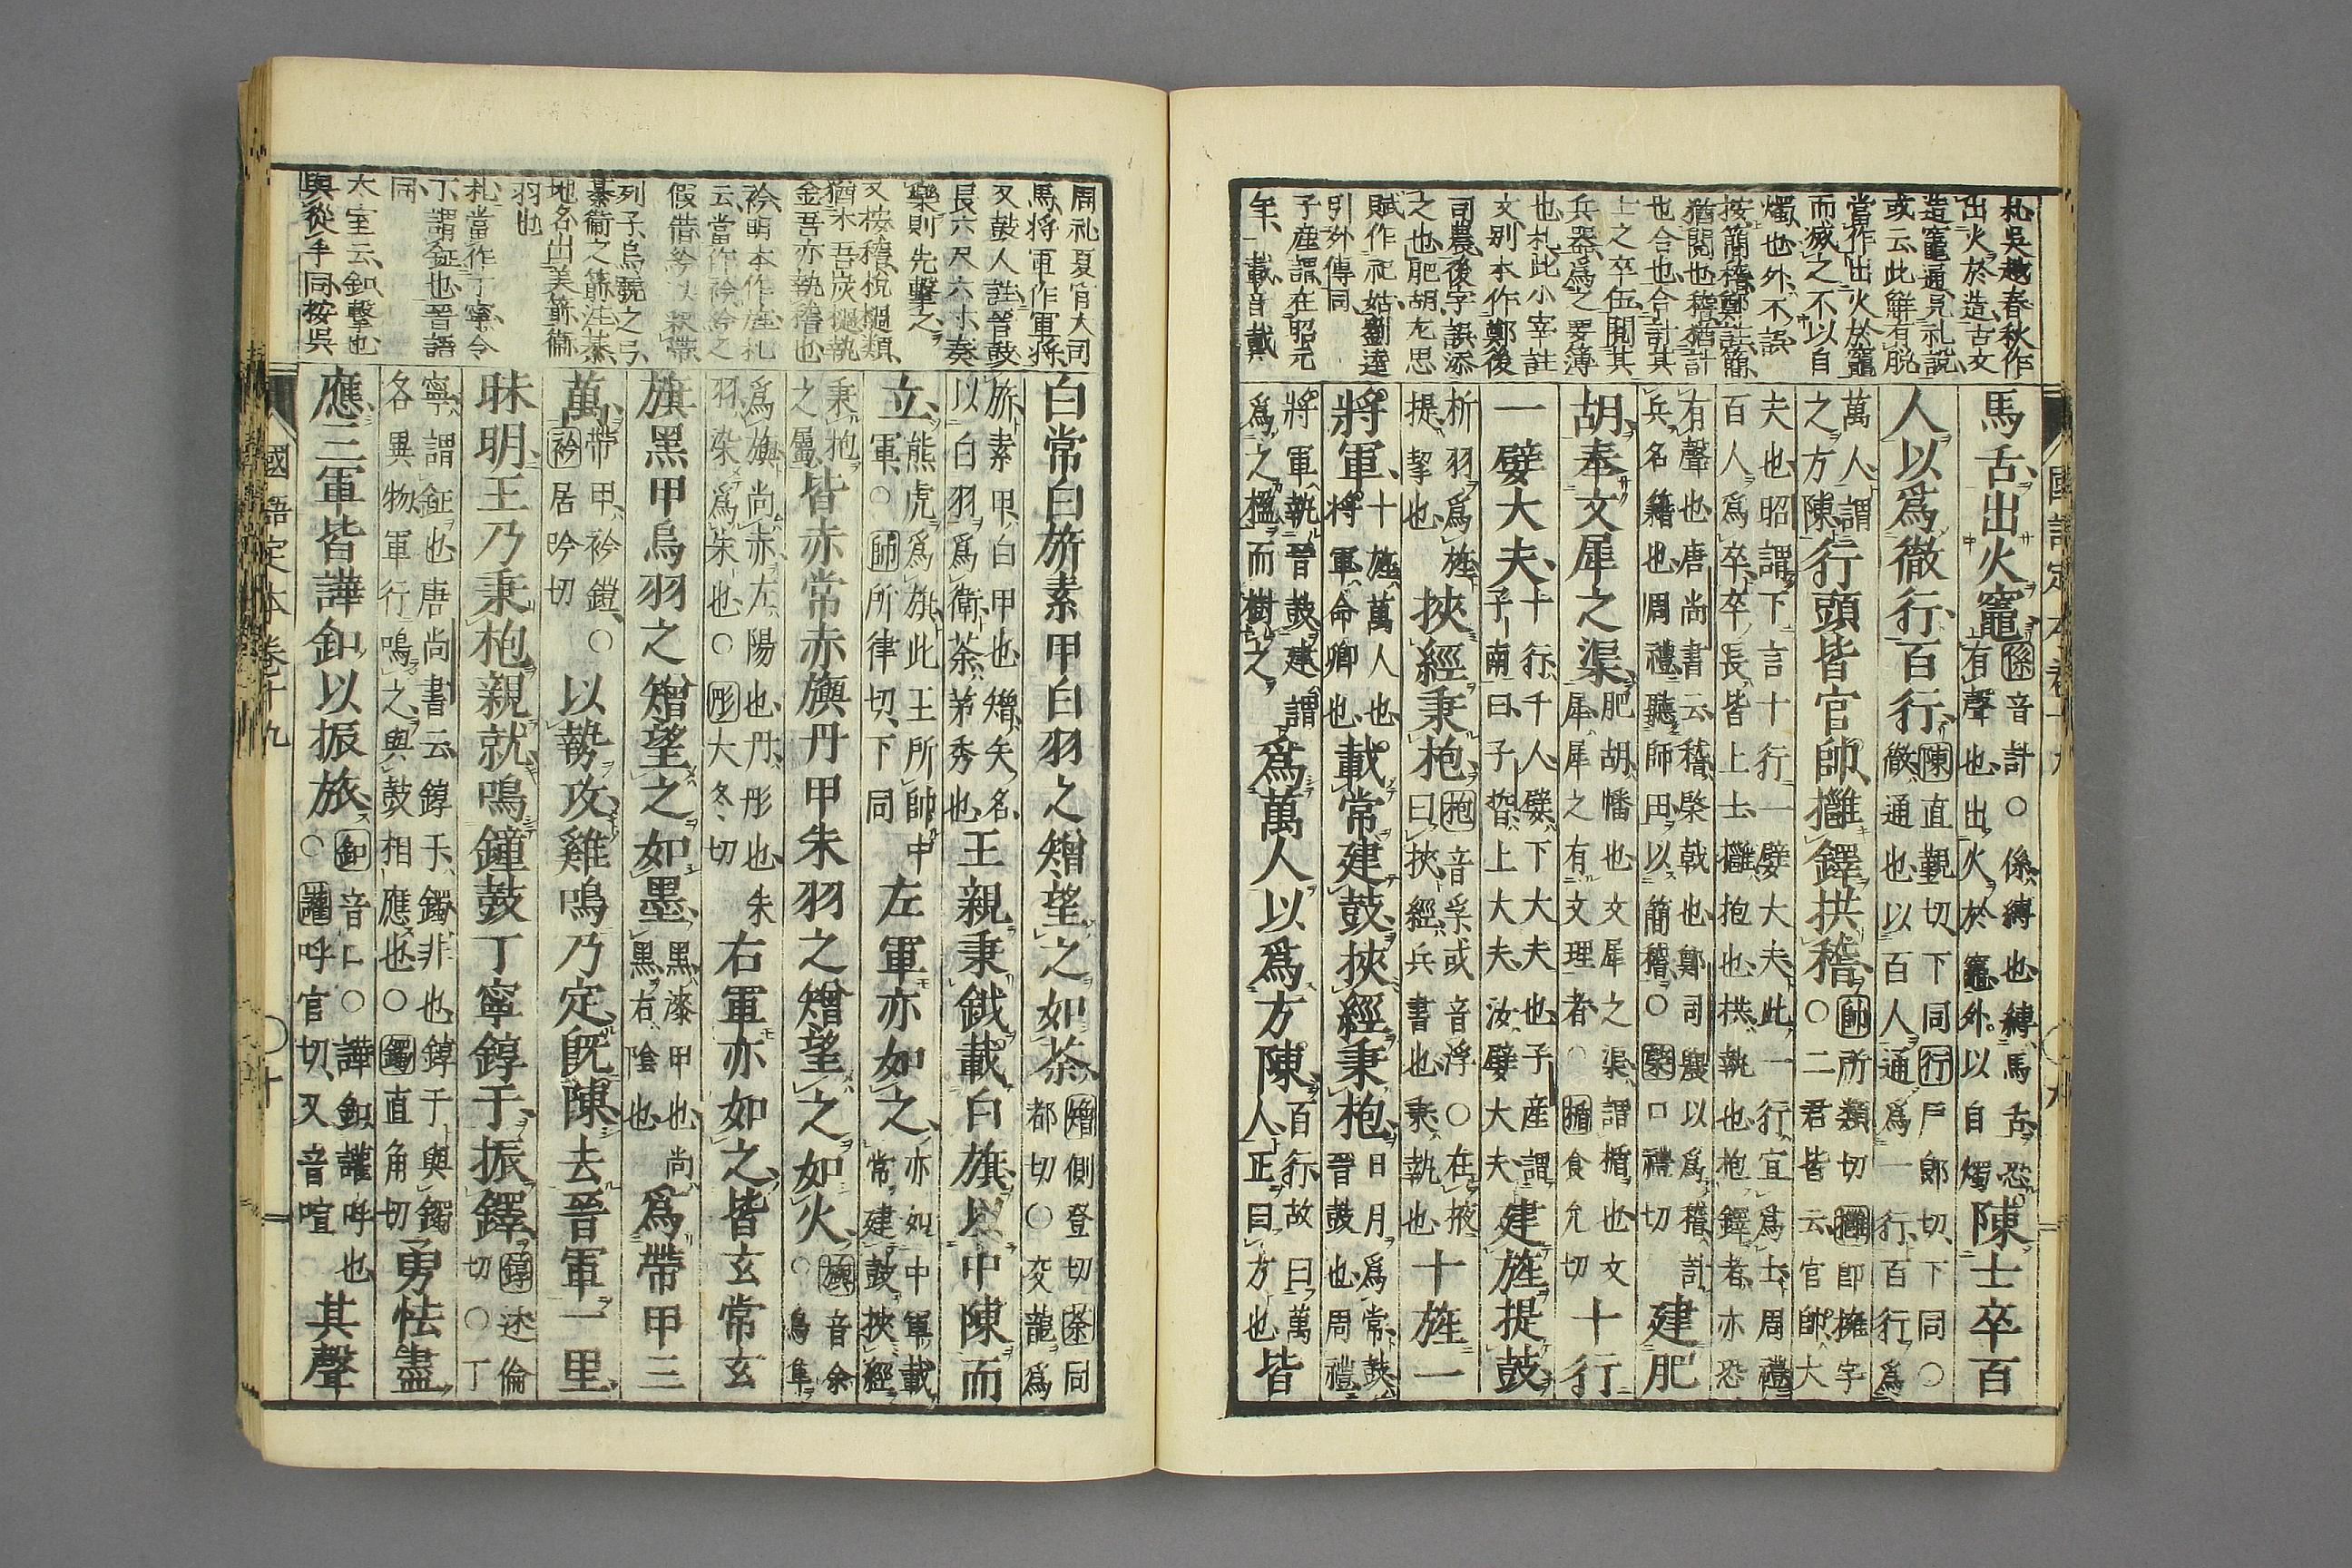 札吳越春秋作
出火於造古文
造竈通見札說
或云此鮮有脫
當作出火於竈
而滅之不以自
燭也外不誤
按簡稽鄭註簡
猶閱也稽猶計
也合也合計其
士之卒伍閱其
兵器爲之要簿
也札此小宰註
文别本作鄭後
司農後字誤添
之也肥胡尨思
賦作祀姑劉逵
引外傳同
子產謂在昭元
年載音戴
馬舌出火竈係音計○係縛也縛馬舌恐有聲也出火於竈外以自燭陳士卒百
人以爲徹行百行陳直覲切下同行戶郎切下同○徹通也以百人通爲一行百行爲
萬人謂之方陳行頭皆官帥擁鐸拱稽帥所類切擁卽擁字○二君皆云官帥大
夫也昭謂下言十行一嬖大夫此一行宜爲士周禮百人爲卒卒長皆上士擁抱也拱執也抱鐸者亦恐
有聲也唐尚書云稽棨戟也鄭司農以爲稽計兵名籍也周禮聽師田以簡稽○棨口禮切建肥
胡奉文犀之渠肥胡幡也文犀之渠謂楯也文犀犀之有文理者○楯食允切十行
一嬖大夫十行千人嬖下大夫也子產謂子南曰子晳上大夫汝嬖大夫建旌提鼓
析羽爲旌提挈也挾經秉枹枹音孚或音浮○在掖曰挾經兵書也秉執也十旌一
將軍十旌萬人也將軍命卿也載常建鼓挾經秉枹日月爲常鼓晉鼓也周禮
將軍執晉鼓建謂爲之楹而樹之爲萬人以爲方陳百行故曰萬人正曰方也皆
國語定本卷十九 ○九
周礼夏官大司
馬將軍作軍將
又鼓人註晉鼓
長六尺六寸奏
樂則先擊之
又按稽梲檛類
猶木吾灰檛執
金吾亦執稽也
衿明本作於札
云當作衿衿之
假借衿以衆帶
列子烏號之弓
綦衛之箭注綦
地名出美箭衛
羽也
札當作丁寧令
丁謂鉦也晉語
同
大室云釦擊也
與從手同按吳
白常白旂素甲白羽之矰望之如荼矰側登切荼同都切○交龍爲
旂素甲白甲也矰矢名以白羽爲衛荼茅秀也王親秉鉞載白旗以中陳而
立熊虎爲旗此王所帥中軍○帥所律切下同左軍亦如之亦如中軍載常建鼓挾經
秉枹之屬皆赤常赤旟丹甲朱羽之矰望之如火旟音余○鳥隼
爲旟尚赤左陽也丹彤也朱羽染爲朱也○彤大冬切右軍亦如之皆玄常玄
旗黑甲烏羽之矰望之如墨黑漆甲也尚黑右陰也爲帶甲三
萬帶甲衿鎧○衿居吟切以勢攻雞鳴乃定旣陳去晉軍一里
昧明王乃秉枹親就鳴鐘鼓丁寧錞于振鐸錞述倫切○丁
寧謂鉦也唐尚書云錞于鐲非也錞于與鐲各異物軍行鳴之與鼓相應也○鐲直角切勇怯盡
應三軍皆譁釦以振旅釦音口○譁釦讙呼也○讙呼官切又音喧其聲
國語定本卷十九 ○十